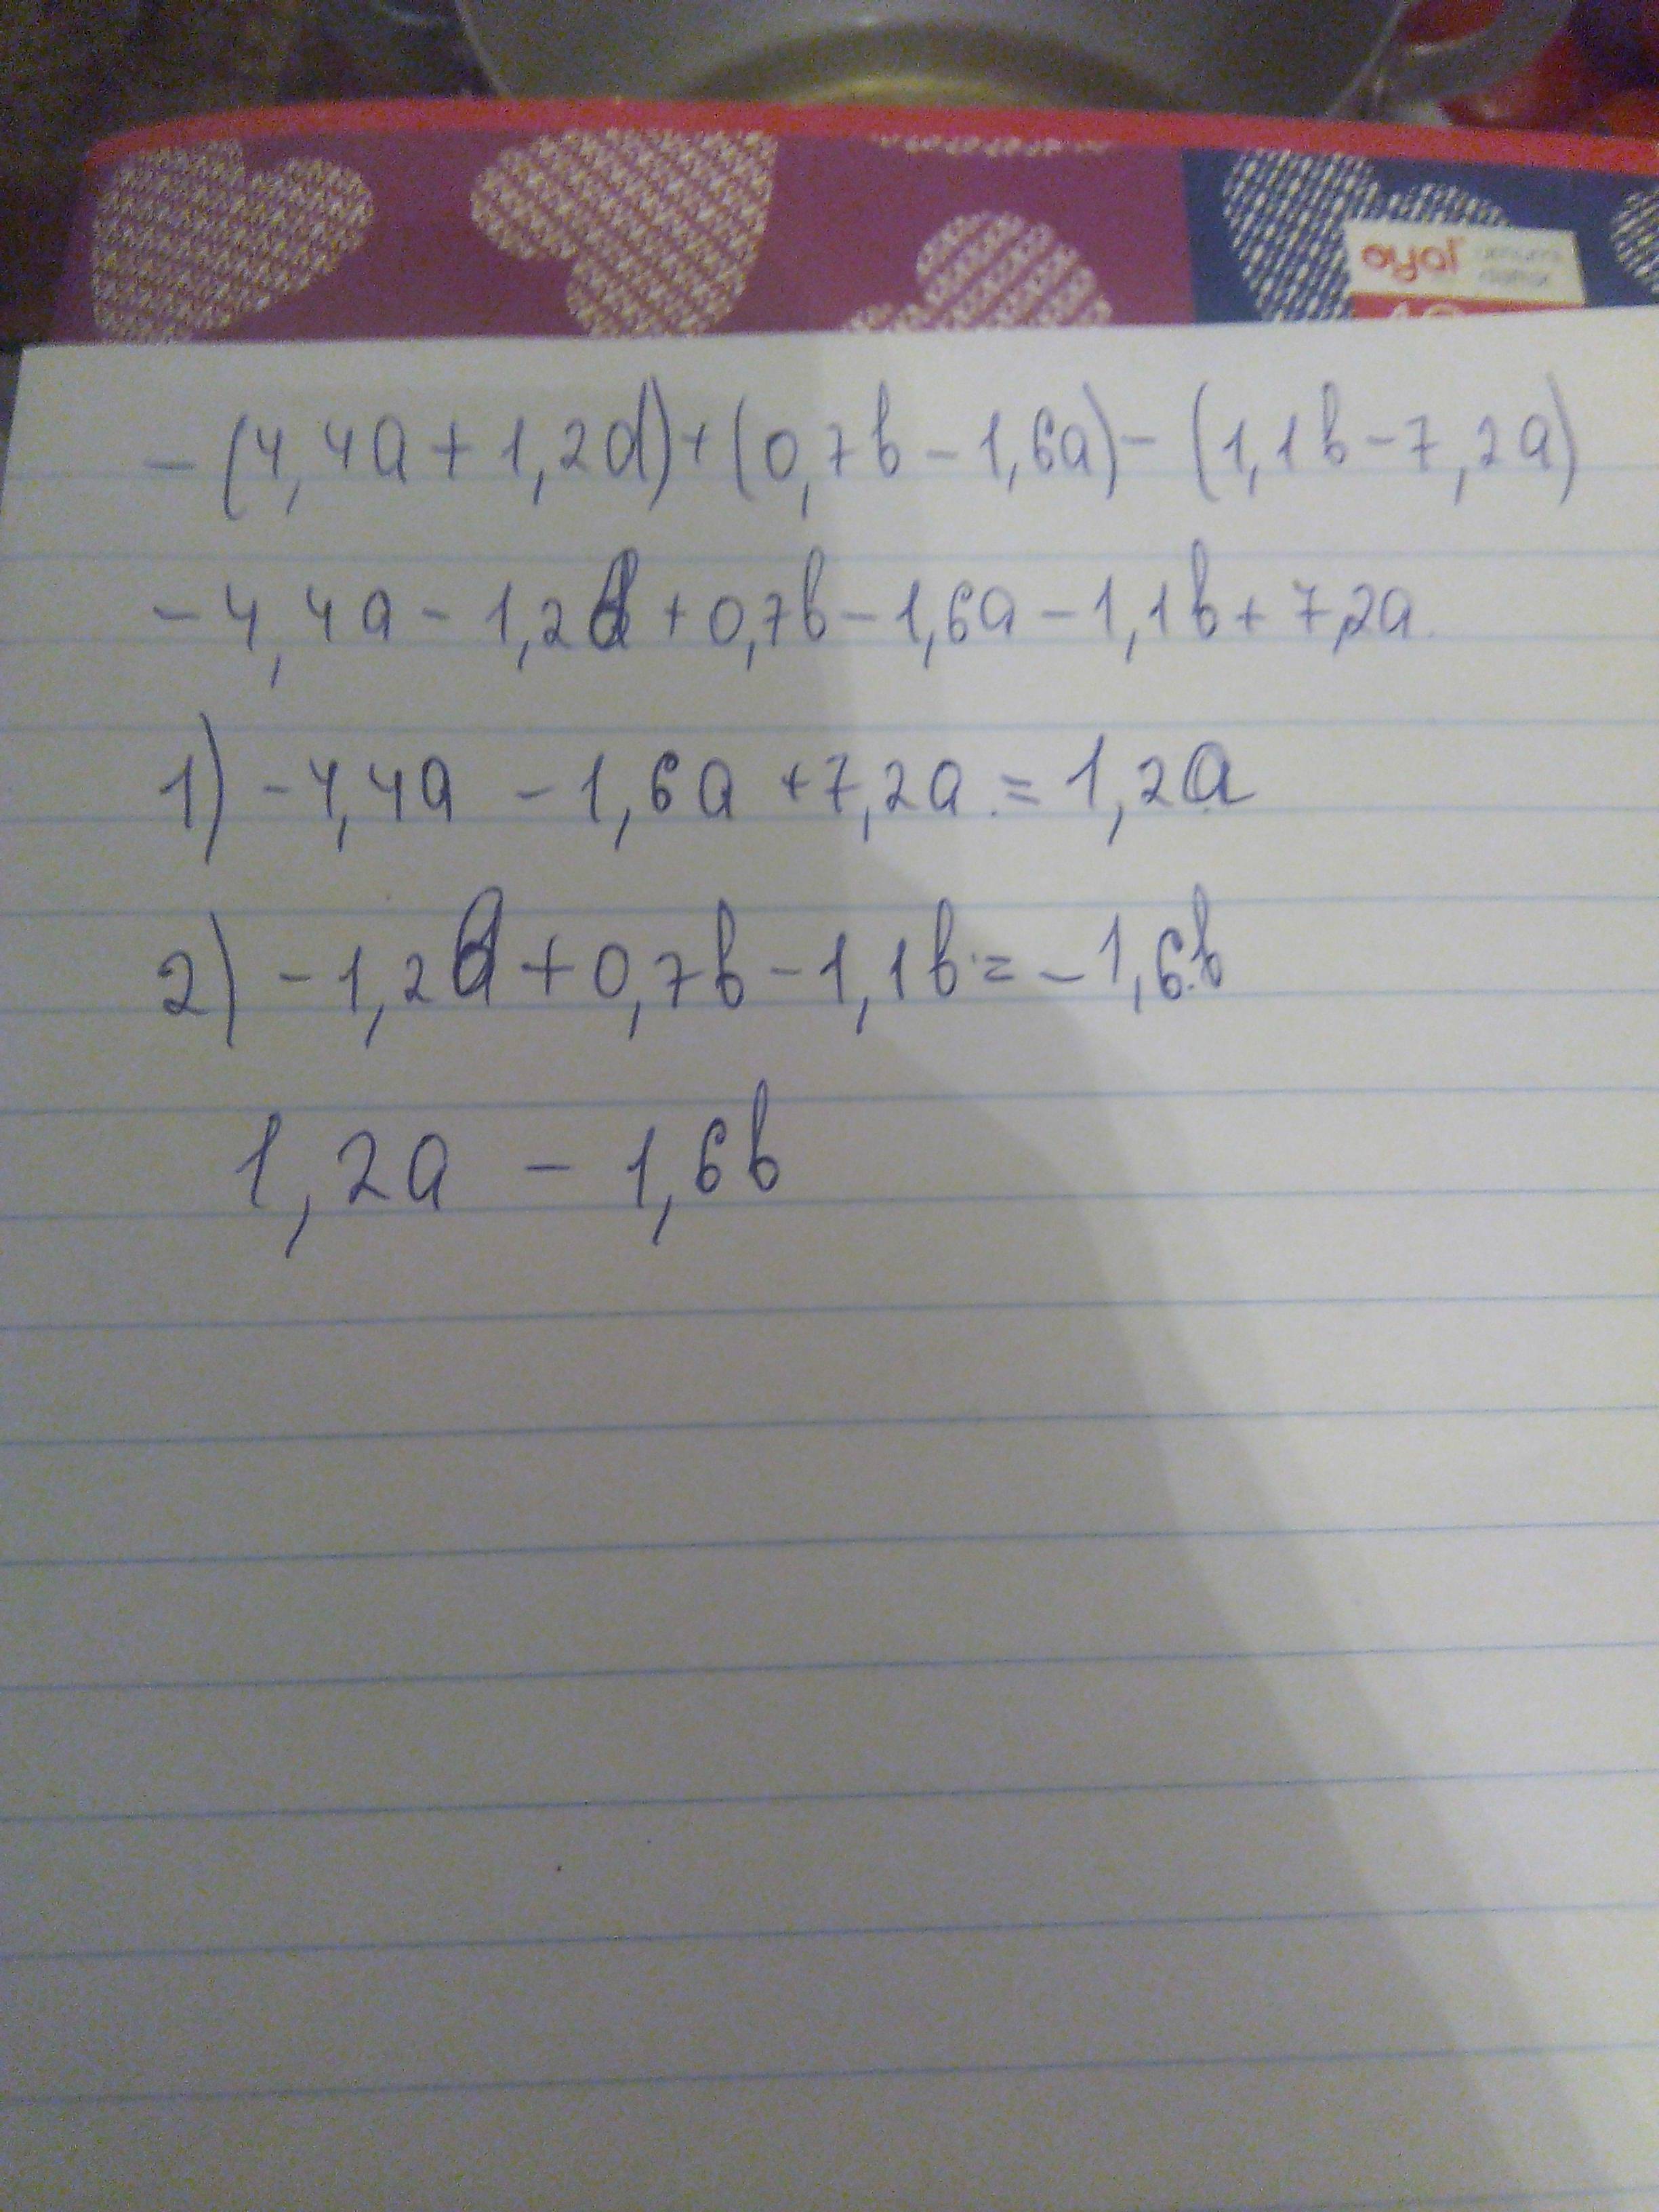 oyal
-(4,4a+1,2d)+(0,7b-1,6a)-(1,1b-7,2a)
-4,4a-1,2b+0,7b-1,6a-1,1b+7,2a
1) -4,4a-1,6a+7,2a=1,2a
2) -1,2b+0,7b-1,1b=-1,6b
1,2a-1,6b